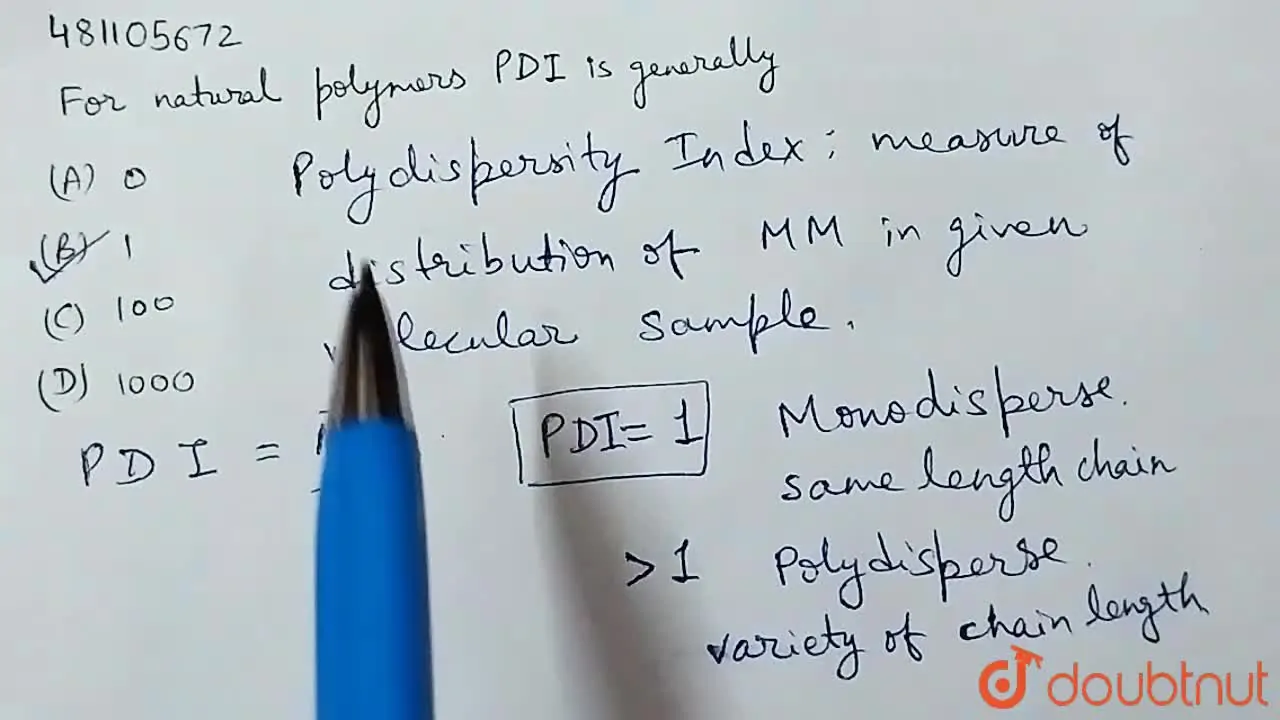 481105672
For natural polymers PDI is generally
(A) 0
Polydispersity Index: measure of
(B) 1
distribution of MM in given
(C) 100
lecular sample.
(D) 1000
PDI =
PDI = 1
Monodisperse.
same length chain
>1 Polydisperse.
variety of chain length
doubtnut